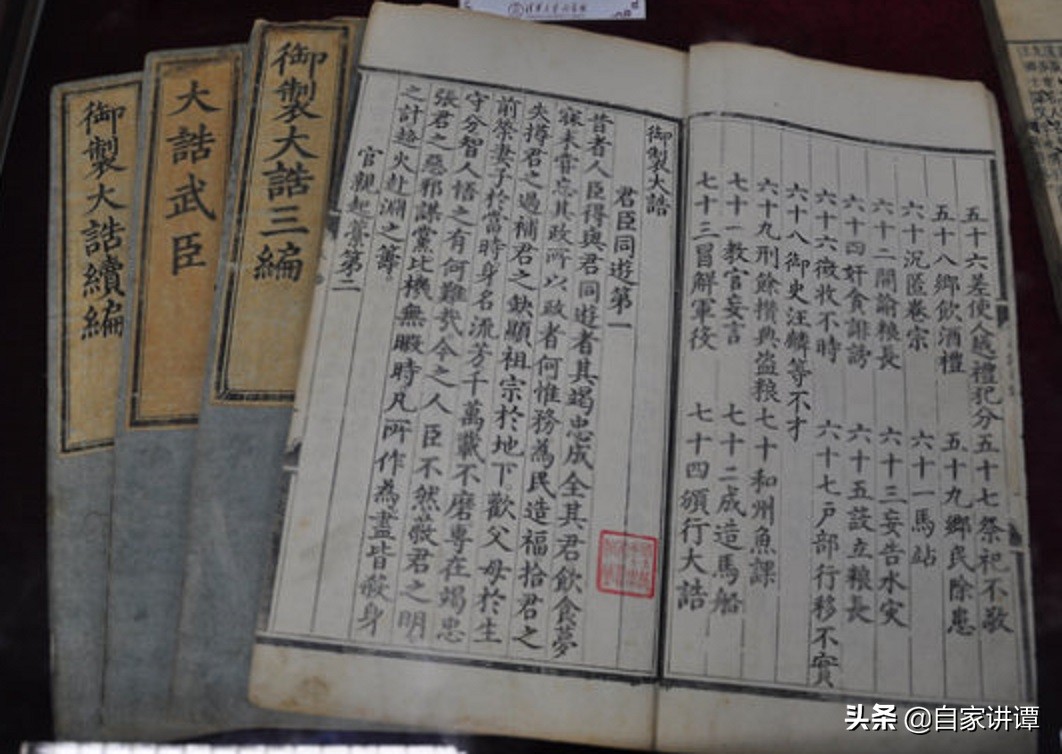 五十六差使人越禮犯分 五十七祭祀不敬
五十八鄉飲酒禮 五十九鄉民除患
六十沉匿卷宗 六十一馬站
六十二開諭粮長 六十三妄告水灾
六十四奸貪誹謗 六十五設立粮長
六十六徵收不時 六十七戶部行移不實
六十八御史汪麟等不才
六十九刑餘攢典盜粮 七十和州魚課
七十一教官妄言 七十二成造馬船
七十三冒解軍役 七十四頒行大誥
御製大誥
君臣同遊第一
昔者人臣得與君同遊者其竭忠成全其君飲食夢
寐未嘗忘其政所以政者何惟務為民造福拾君之
失撙君之過補君之缺顯祖宗於地下歡父母於生
前榮妻子於當時身名流芳千萬載不磨專在竭忠
守分智人悟之有何難哉今之人臣不然蔽君之明
張君之惡邪謀黨比機無暇時凡所作為盡皆殺身
之計趨火赴淵之籌
官親起藁第二
御製大誥三編
大誥武臣
御製大誥續編
头条 @自家讲谭